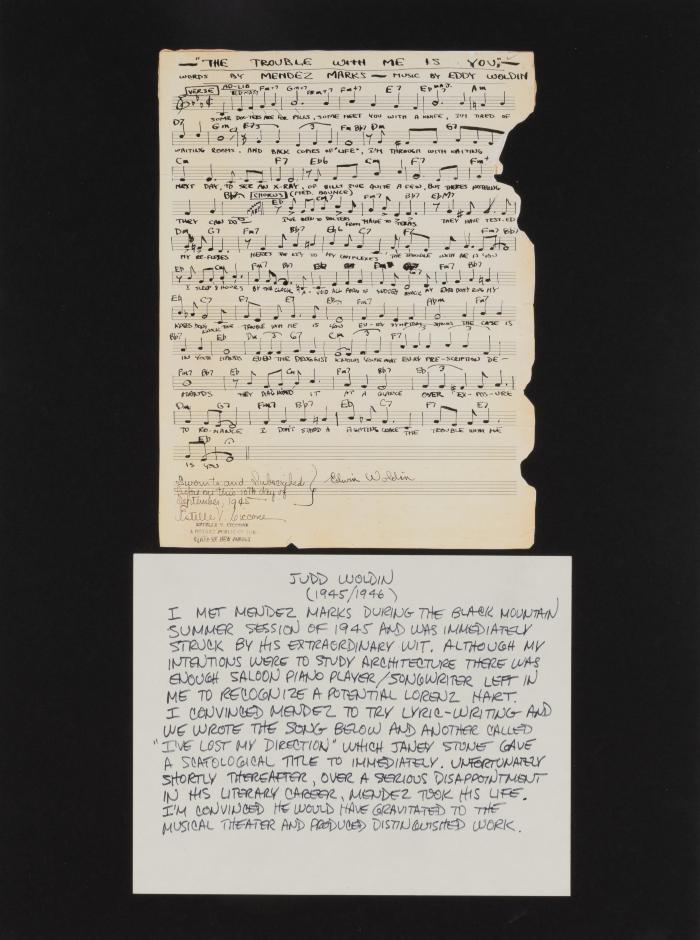 "THE TROUBLE WITH ME IS YOU"
WORDS BY MENDEZ MARKS — MUSIC BY EDDY WOLDIN
VERSE AD-LIB
SOME DOCTORS ARE FOR PILLS, SOME MEET YOU WITH A KNIFE, I'M TIRED OF
D7 Gm E7 Fm Bb7 Dm G7
WAITING ROOMS, AND BACK COMES OF "LIFE", I'M THROUGH WITH WAITING
Cm F7 Eb6 Cm F7 Fm+
NEXT DAY, TO SEE AN X-RAY, OF BILLS I'VE QUITE A FEW, BUT THERE'S NOTHING
Bb7 CHORUS (MED. BOUNCE)
THEY CAN DO I'VE BEEN TO DOCTORS FROM MAINE TO TEXAS THEY HAVE TEST-ED
Dm G7 Fm7 Bb7 Eb6 C7 F7 Fm7 Bb7
MY RE-FLEXES HERE'S THE KEY TO MY COMPLEXES THE TROUBLE WITH ME IS YOU
I SLEEP 8 HOURS BY THE CLOCK A-VOID ALL
KNEES DON'T KNOCK THE TROUBLE WITH ME IS YOU EV-RY SYMPTOM SHOWS THE CASE IS
Bb7 Eb Dm G7 Cm F7
IN YOUR HANDS EVEN THE DRUGGIST KNOWS YOU'RE WHAT EV'RY PRE-SCRIPTION DE-
Fm7 Bb7 Eb Cm Fm7 Bb7 Eb
MANDS THEY DIAGNOSED IT AT A GLANCE OVER EX-POS-URE
Dm G7 Fm7 Bb7 Eb C7 F7 E7
TO RO-MANCE I DON'T STAND A FIGHTING CHANCE THE TROUBLE WITH ME
Eb
IS YOU
Sworn to and Subscribed
before me this 10th day of
September, 1945
Edwin Woldin
Estelle V. Ciccone
ESTELLE V. CICCONE
A NOTARY PUBLIC OF THE
STATE OF NEW JERSEY
JUDD WOLDIN
(1945/1946)
I MET MENDEZ MARKS DURING THE BLACK MOUNTAIN
SUMMER SESSION OF 1945 AND WAS IMMEDIATELY
STRUCK BY HIS EXTRAORDINARY WIT. ALTHOUGH MY
INTENTIONS WERE TO STUDY ARCHITECTURE THERE WAS
ENOUGH SALOON PIANO PLAYER/SONGWRITER LEFT IN
ME TO RECOGNIZE A POTENTIAL LORENZ HART.
I CONVINCED MENDEZ TO TRY LYRIC-WRITING AND
WE WROTE THE SONG BELOW AND ANOTHER CALLED
"I'VE LOST MY DIRECTION" WHICH JANEY STONE GAVE
A SCATOLOGICAL TITLE TO IMMEDIATELY. UNFORTUNATELY
SHORTLY THEREAFTER, OVER A SERIOUS DISAPPOINTMENT
IN HIS LITERARY CAREER, MENDEZ TOOK HIS LIFE.
I'M CONVINCED HE WOULD HAVE GRAVITATED TO THE
MUSICAL THEATER AND PRODUCED DISTINGUISHED WORK.